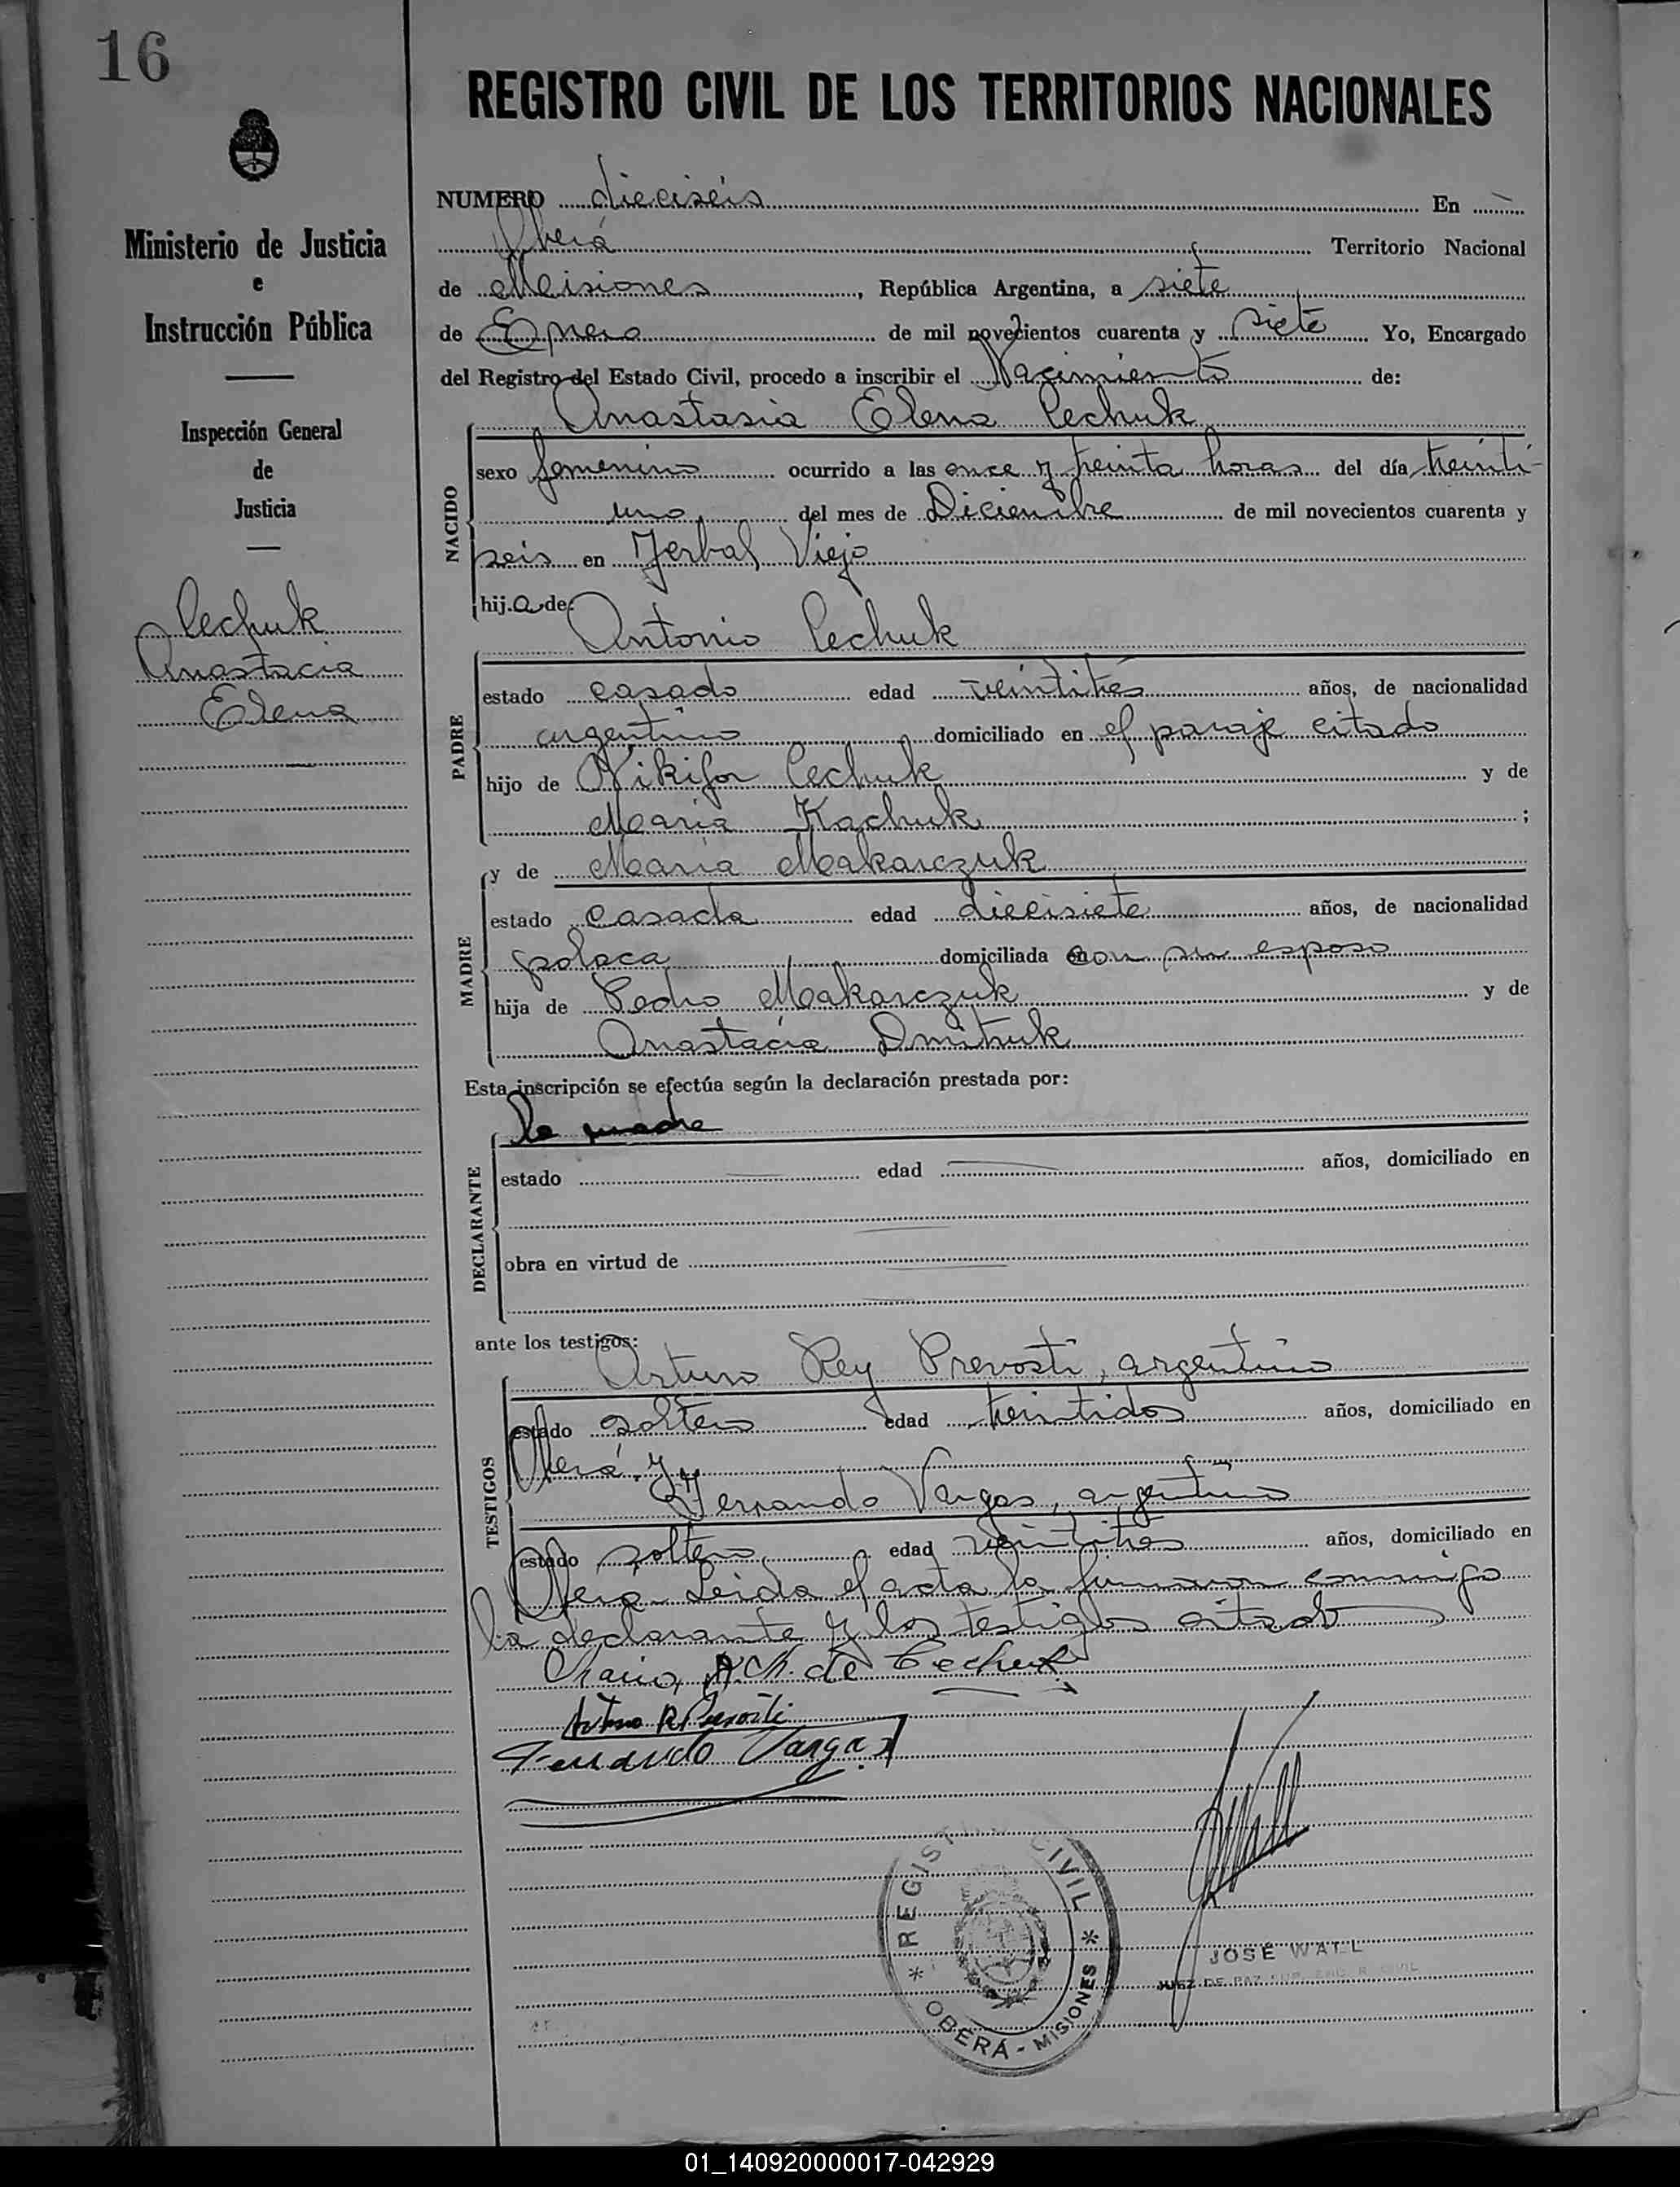 16
REGISTRO CIVIL DE LOS TERRITORIOS NACIONALES
Ministerio de Justicia
e
Instrucción Pública
Inspección General
de
Justicia
Pechuk
Anastacia
Elena
NUMERO dieciseis En
Oberá Territorio Nacional
de Misiones, República Argentina, a siete
de Enero de mil novecientos cuarenta y siete Yo, Encargado
del Registro del Estado Civil, procedo a inscribir el Nacimiento de:
Anastasia Elena Pechuk
NACIDO
sexo femenino ocurrido a las once y treinta horas del día treinti-
uno del mes de Diciembre de mil novecientos cuarenta y
seis en Yerbal Viejo
hij.a de:
Antonio Pechuk
PADRE
estado casado edad veintitrés años, de nacionalidad
argentino domiciliado en el paraje citado
hijo de Nikifor Pechuk y de
María Kachuk ;
y de María Makarczuk
MADRE
estado casada edad diecisiete años, de nacionalidad
polaca domiciliada con su esposo
hija de Pedro Makarczuk y de
Anastacia Dmitruk
Esta inscripción se efectúa según la declaración prestada por:
la madre
DECLARANTE
estado edad años, domiciliado en
obra en virtud de
ante los testigos:
Arturo Rey Prevosti, argentino
TESTIGOS
estado soltero edad treintidos años, domiciliado en
Oberá y
Fernando Vargas, argentino
estado soltero edad veintitrés años, domiciliado en
Oberá. Leida el acta la firmaron conmigo
la declarante y los testigos citados
de Pechuk
Arturo R Prevosti
Fernando Vargas
REGISTRO CIVIL
OBERÁ - MISIONES
JOSÉ WALL
JUEZ DE PAZ
01_140920000017-042929